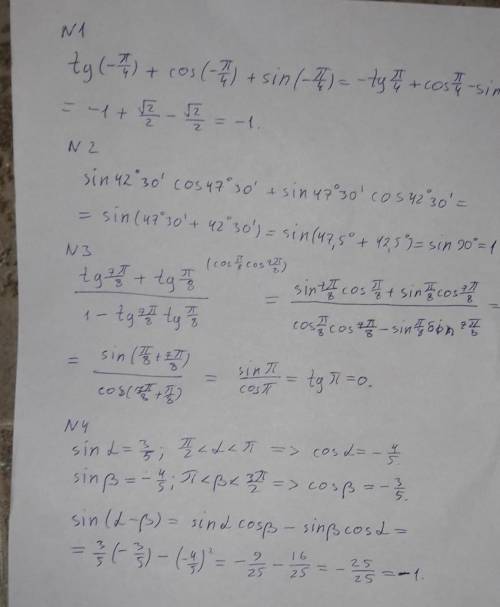 N1
tg(-π/4) + cos(-π/4) + sin(-π/4) = -tg π/4 + cos π/4 - sin
= -1 + √2/2 - √2/2 = -1.
N2
sin42°30' cos47°30' + sin47°30' cos42°30' =
= sin(47°30' + 42°30') = sin(47,5° + 42,5°) = sin 90° = 1
N3
(tg 7π/8 + tg π/8)/(1 - tg 7π/8 tg π/8) (cos π/8 cos 7π/8) = (sin 7π/8 cos π/8 + sin π/8 cos 7π/8)/(cos π/8 cos 7π/8 - sin π/8 sin 7π/8) =
= sin(π/8 + 7π/8)/cos(7π/8 + π/8) = sin π/cos π = tg π = 0.
N4
sin α = 3/5; π/2 < α < π => cos α = -4/5.
sin β = -4/5; π < β < 3π/2 => cos β = -3/5.
sin(α-β) = sin α cos β - sin β cos α =
= 3/5(-3/5) - (-4/5)² = -9/25 - 16/25 = -25/25 = -1.